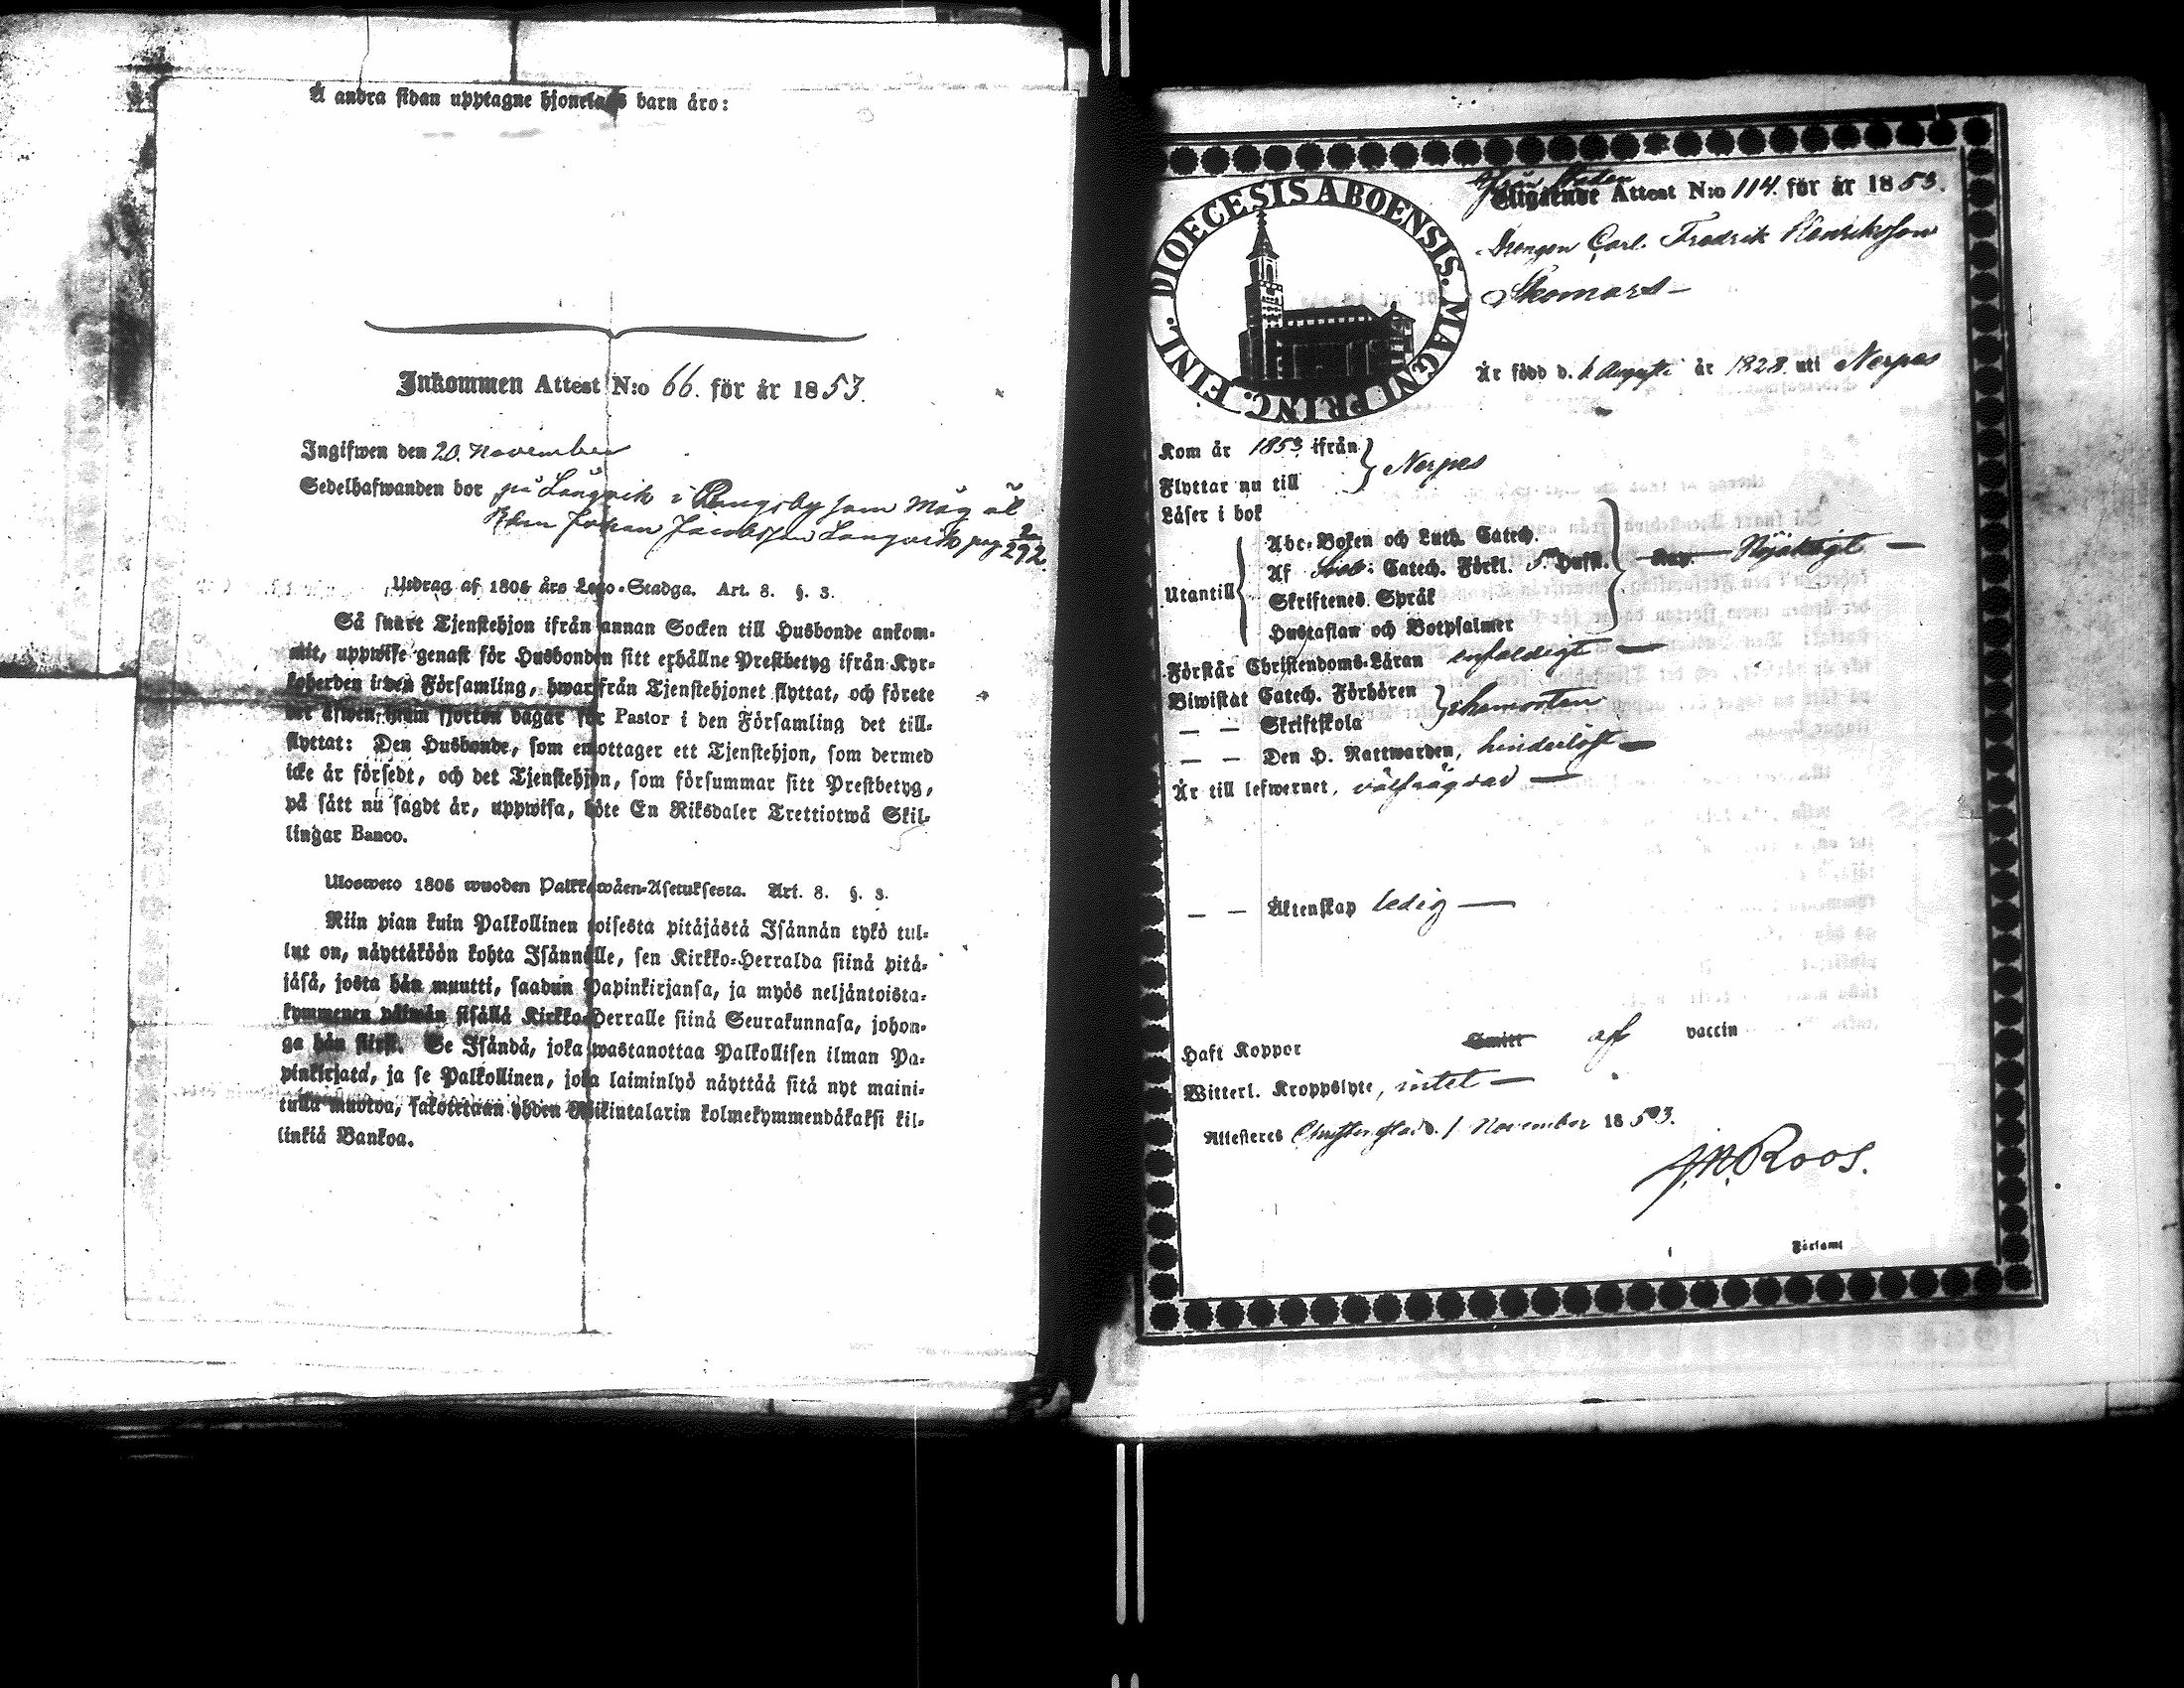 Å andra sidan upptagne hjonelags barn äro:
Inkommen Attest N:o 66. för år 1853.
Ingifwen den 20. November
Sedelhafwanden bor på Långvik i som Måg åt
Johan Jacobsson Långvik pag 292.
Utdrag af 1805 års Lego-Stadga. Art. 8. §. 3.
Så snart Tjenstehjon ifrån annan Socken till Husbonde ankom-
mit, uppwise genast för Husbonden sitt erhållne Prestbetyg ifrån Kyr-
koherden i den Församling, hwarifrån Tjenstehjonet flyttat, och förete
det äfwen inom fjorton dagar för Pastor i den Församling det till-
flyttat: Den Husbonde, som emottager ett Tjenstehjon, som dermed
icke är försedt, och det Tjenstehjon, som försummar sitt Prestbetyg,
på sätt nu sagdt är, uppwisa, böte En Riksdaler Trettiotwå Skil-
lingar Banco.
Ulosweto 1805 wuoden Palkkawäen-Asetuksesta. Art. 8. §. 3.
Niin pian kuin Palkollinen toisesta pitäjästä Isännän tykö tul-
lut on, näyttäköön kohta Isännälle, sen Kirkko-Herralda siinä pitä-
jäsä, josta hän muutti, saadun Papinkirjansa, ja myös neljäntoista-
kymmenen päiwän sisällä Kirkko-Herralle siinä Seurakunnasa, johon-
ga hän siirsi. Se Isändä, joka wastanottaa Palkollisen ilman Pa-
pinkirjata, ja se Palkollinen, joka laiminlyö näyttää sitä nyt maini-
tulla muotoa, sakotetaan yhden Rikintalarin kolmekymmendäkaksi kil-
linkiä Bankoa.
DIOECESIS ABOENSIS. MAGNI PRINC. FINL.
från Staden
Utgående Attest N:o 114. för år 1853.
Drengen Carl Fredrik Henriksson
Skomars
Är född d. Augusti år 1828 uti Nerpes
Kom år 1853 ifrån
Flyttar nu till } Nerpes
Läser i bok
Utantill
Abc-Boken och Luth. Catech.
Af Catech. Förkl. 5 Hufst. Nöjaktigt
Skriftenes Språk
Hustaflan och Botpsalmer
Förstår Christendoms-Läran enfaldigt
Biwistat Catech. Förhören
— — Skriftskola
— — Den H. Nattwarden, hinderlöst
Är till lefwernet, välfrägdad
— — Äktenskap ledig
Haft Koppor af vaccin
Witterl. Kroppslyte, intet
Attesteres Christinestad d. 1 November 1853.
J.M. Roos.